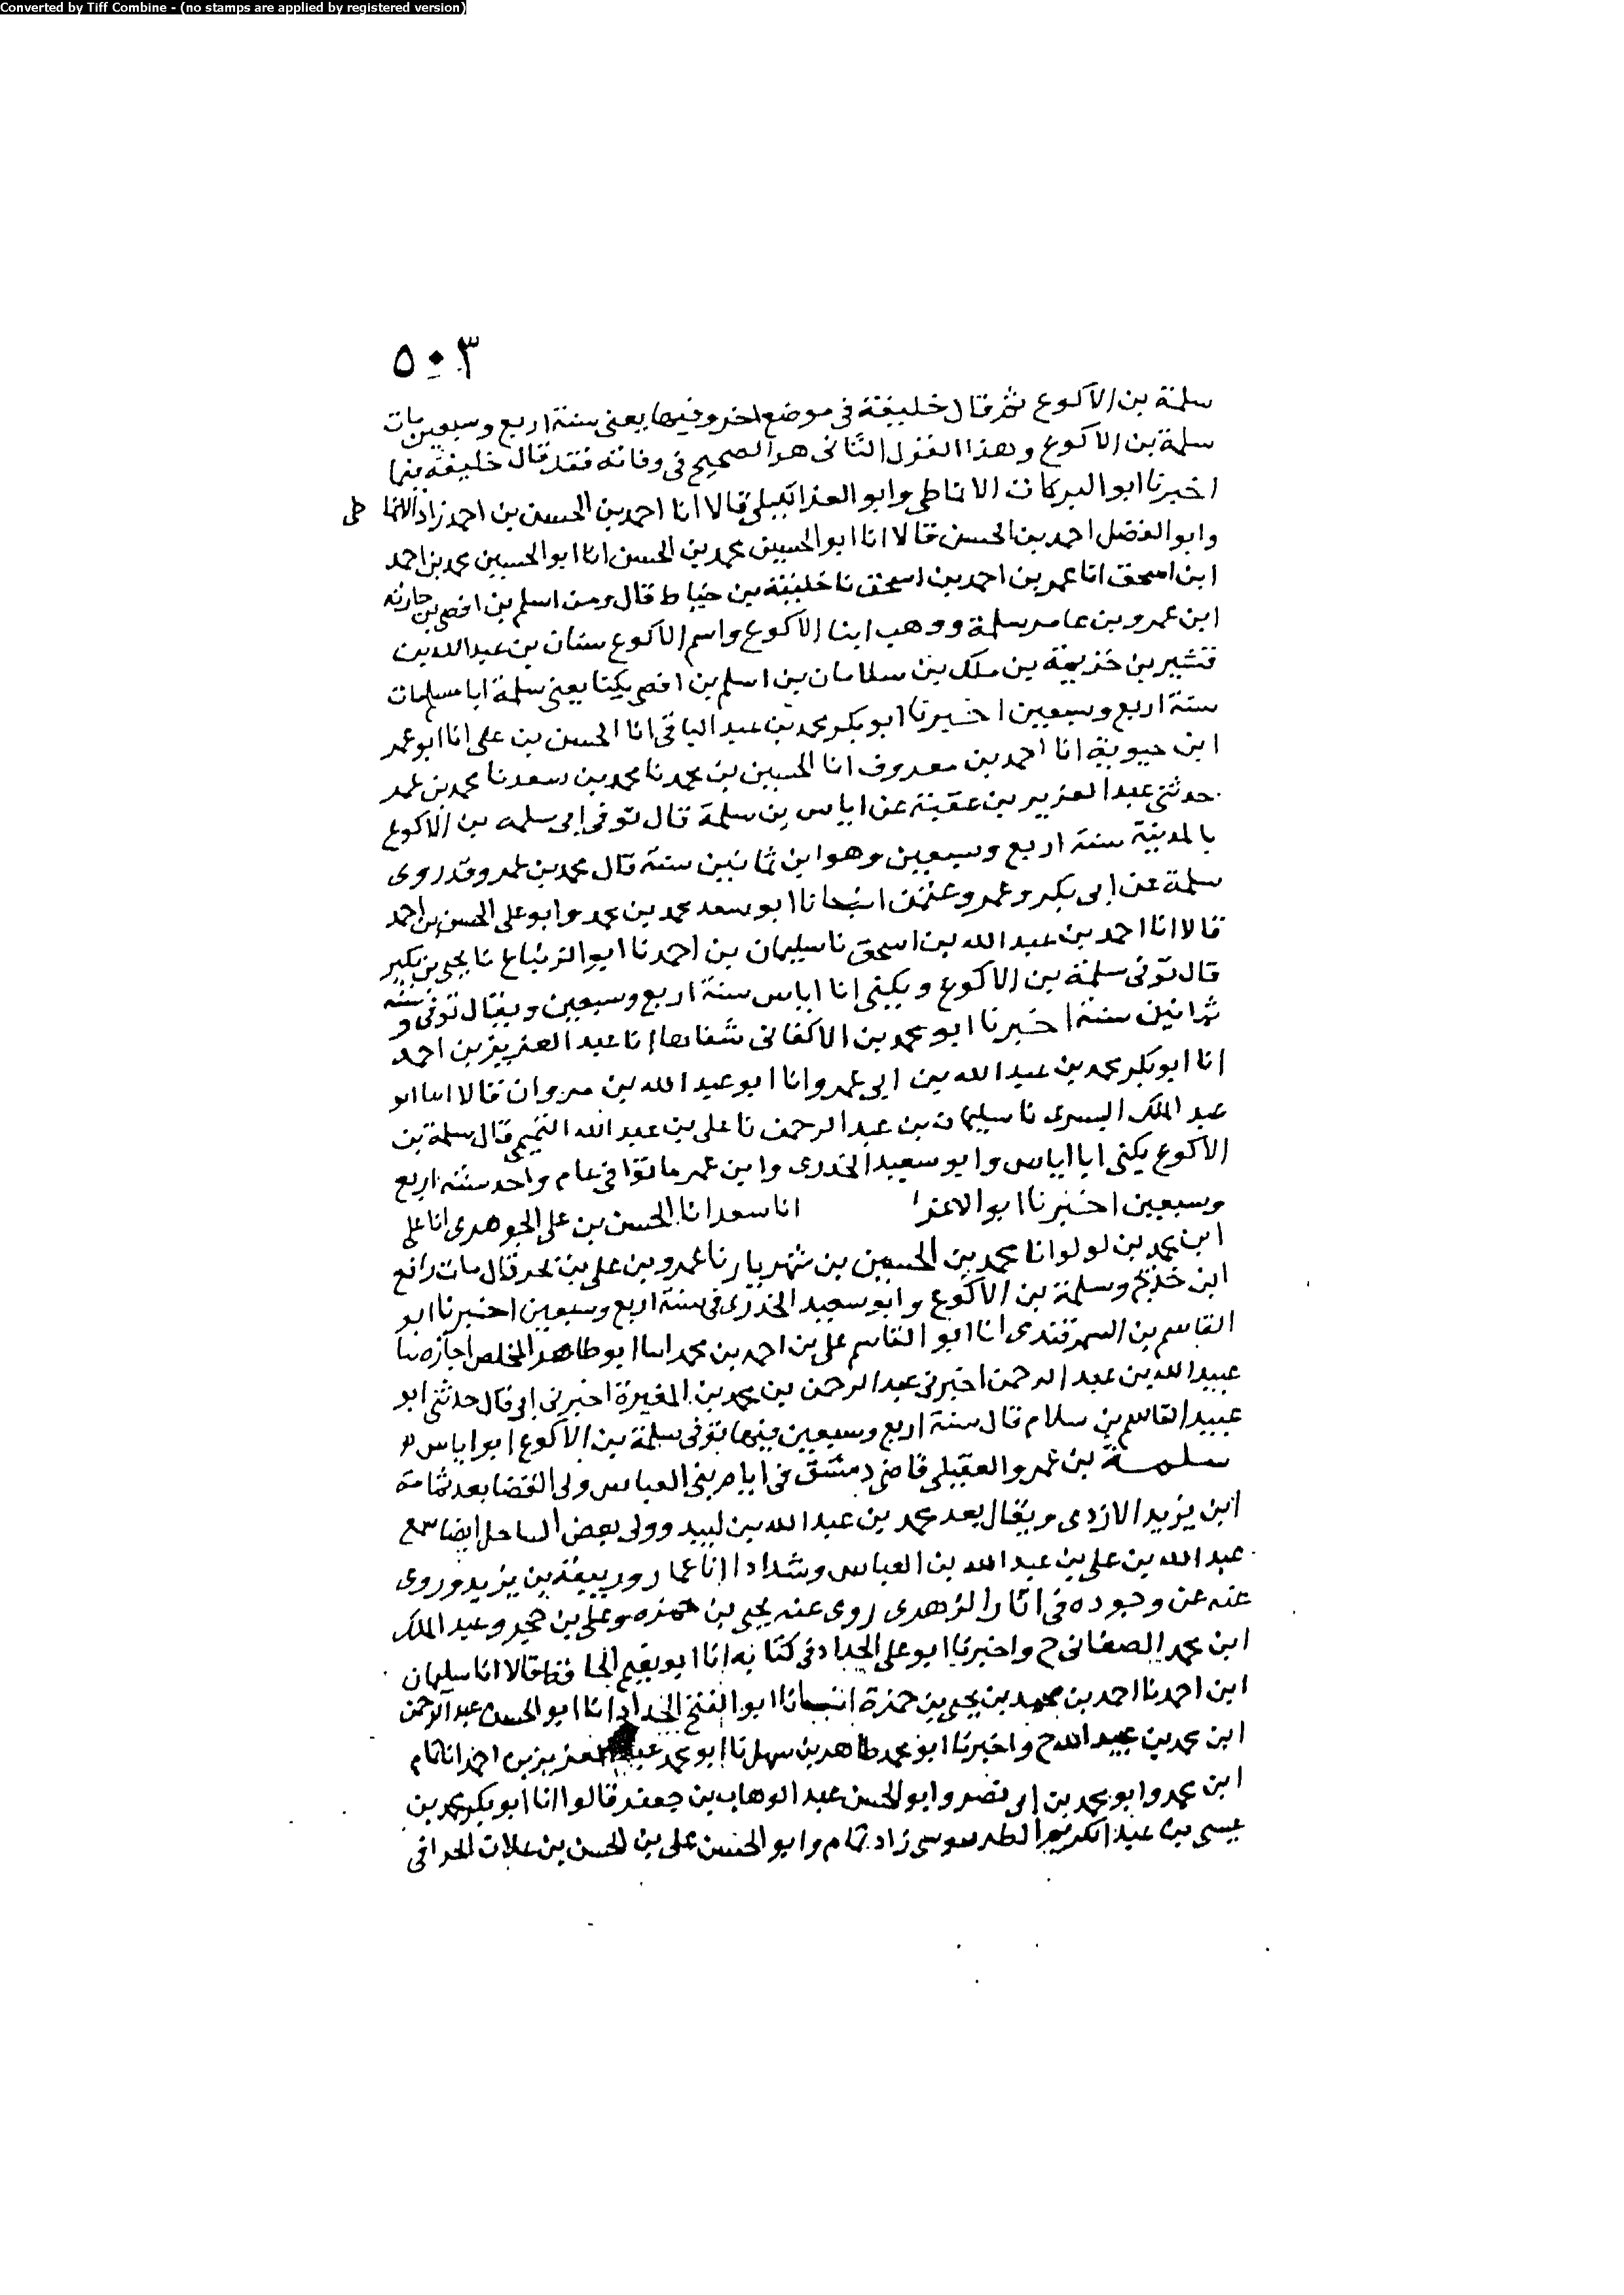 Converted by Tiff Combine - (no stamps are applied by registered version)
٥٠٣
سلمة بن الاكوع ثم قال خليفة فى موضع اخر وفيها يعنى سنة اربع وسبعين مات
سلمة بن الاكوع وهذا القول الثانى هو الصحيح فى وفاته فقد قال خليفة فيما
اخبرنا ابو البركات الانماطى وابو العز الكيلى قالا انا احمد بن الحسن بن احمد زاد الانماطى
وابو الفضل احمد بن الحسن قالا انا ابو الحسين محمد بن الحسن انا ابو الحسين محمد بن احمد
ابن اسحق انا عمر بن احمد بن اسحق نا خليفة بن خياط قال ومن اسلم بن افصى بن حارثه
ابن عمرو بن عامر سلمة ووهب ابنا الاكوع واسم الاكوع سنان بن عبد الله بن
قشير بن خزيمة بن ملك بن سلامان بن اسلم بن افصى يكنا يعنى سلمة ابا مسلم مات
سنة اربع وسبعين اخبرنا ابو بكر محمد بن عبد الباقى انا الحسن بن على انا ابو عمر
ابن حيوية انا احمد بن معروف انا الحسين بن محمد نا محمد بن سعد نا محمد بن عمر
حدثنى عبد العزيز بن عقبة عن اياس بن سلمة قال توفى ابى سلمه بن الاكوع
بالمدينة سنة اربع وسبعين وهو ابن ثمانين سنة قال محمد بن عمر وقد روى
سلمة عن ابى بكر وعمر وعثمن انبانا ابو سعد محمد بن محمد وابو على الحسن بن احمد
قالا انا احمد بن عبد الله بن اسحق نا سليمان بن احمد نا ابو الزنباع نا يحيى بن بكير
قال توفى سلمة بن الاكوع ويكنى ابا اياس سنة اربع وسبعين ويقال توفى وسنه
ثمانين سنة اخبرنا ابو محمد بن الاكفانى شفاها انا عبد العزيز بن احمد
انا ابو بكر محمد بن عبد الله بن ابى عمرو انا ابو عبد الله بن مروان قالا انا ابو
عبد الملك البسرى نا سليمان بن عبد الرحمن نا على بن عبد الله التميمى قال سلمة بن
الاكوع يكنى ابا اياس وابو سعيد الخدرى وابن عمر ماتوا فى عام واحد سنة اربع
وسبعين اخبرنا ابو الاعز انا سعد انا الحسن بن على الجوهرى انا على
ابن محمد بن لولو انا محمد بن الحسين بن شهريار نا عمرو بن على بن بحر قال مات رافع
ابن خديج وسلمة بن الاكوع وابو سعيد الخدرى فى سنة اربع وسبعين اخبرنا ابو
القاسم بن السمرقندى انا ابو القاسم على بن احمد بن محمد انا ابو طاهر المخلص اجازه نا
عبيد الله بن عبد الرحمن اخبرنى عبد الرحمن بن محمد بن المغيرة اخبرنى ابى قال حدثنى ابو
عبيد القاسم بن سلام قال سنة اربع وسبعين فيها توفى سلمة بن الاكوع ابو اياس
سلمة بن عمرو العقيلى قاضى دمشق فى ايام بنى العباس ولى القضا بعد ثمامة
ابن يزيد الازدى ويقال بعد محمد بن عبد الله بن لبيد وولى بعض الساحل ايضا سمع
عبد الله بن على بن عبد الله بن العباس وشدادا ابا عمار وربيعة بن يزيد وروى
عنه عن وجوده فى اثار الزهرى روى عنه يحيى بن حمزه وعلى بن حجر وعبد الملك
ابن محمد الصغانى ح واخبرنا ابو على الحداد فى كتابه انا ابو نعيم الحافظ قالا انا سليمان
ابن احمد نا احمد بن محمد بن يحيى بن حمزة انبانا ابو الفتح الحداد انا ابو الحسن عبد الرحمن
ابن محمد بن عبيد الله ح واخبرنا ابو محمد طاهر بن سهل نا ابو محمد عبد العزيز بن احمد انا تمام
ابن محمد وابو محمد بن ابى نصر وابو الحسن عبد الوهاب بن جعفر قالوا انا ابو بكر محمد بن
عيسى بن عبد الكريم الطرسوسى زاد تمام وابو الحسن على بن الحسن بن علان الحرانى